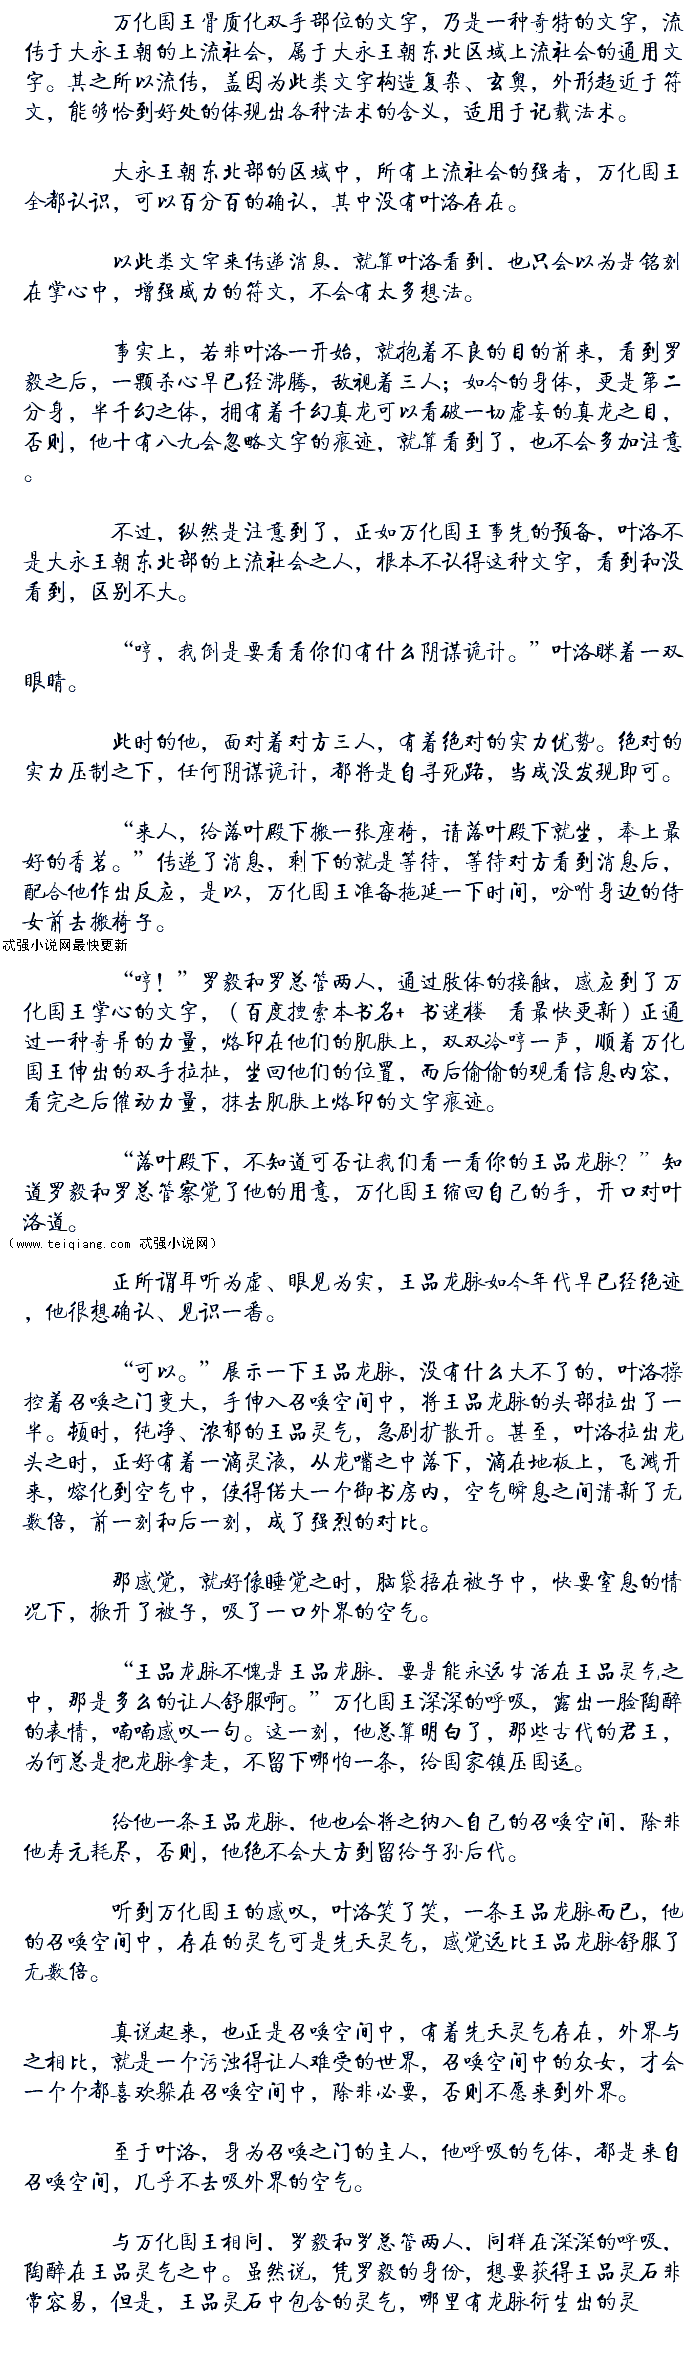 万化国王骨质化双手部位的文字，乃是一种奇特的文字，流
传于大永王朝的上流社会，属于大永王朝东北区域上流社会的通用文
字。其之所以流传，盖因为此类文字构造复杂、玄奥，外形趋近于符
文，能够恰到好处的体现出各种法术的含义，适用于记载法术。
大永王朝东北部的区域中，所有上流社会的强者，万化国王
全都认识，可以百分百的确认，其中没有叶洛存在。
以此类文字来传递消息，就算叶洛看到，也只会以为是铭刻
在掌心中，增强威力的符文，不会有太多想法。
事实上，若非叶洛一开始，就抱着不良的目的前来，看到罗
毅之后，一颗杀心早已经沸腾，敌视着三人；如今的身体，更是第二
分身，半千幻之体，拥有着千幻真龙可以看破一切虚妄的真龙之目，
否则，他十有八九会忽略文字的痕迹，就算看到了，也不会多加注意
。
不过，纵然是注意到了，正如万化国王事先的预备，叶洛不
是大永王朝东北部的上流社会之人，根本不认得这种文字，看到和没
看到，区别不大。
“哼，我倒是要看看你们有什么阴谋诡计。”叶洛眯着一双
眼睛。
此时的他，面对着对方三人，有着绝对的实力优势。绝对的
实力压制之下，任何阴谋诡计，都将是自寻死路，当成没发现即可。
“来人，给落叶殿下搬一张座椅，请落叶殿下就坐，奉上最
好的香茗。”传递了消息，剩下的就是等待，等待对方看到消息后，
配合他作出反应，是以，万化国王准备拖延一下时间，吩咐身边的侍
女前去搬椅子。
忒强小说网最快更新
“哼！”罗毅和罗总管两人，通过肢体的接触，感应到了万
化国王掌心的文字，（百度搜索本书名+ 书迷楼 看最快更新）正通
过一种奇异的力量，烙印在他们的肌肤上，双双冷哼一声，顺着万化
国王伸出的双手拉扯，坐回他们的位置，而后偷偷的观看信息内容，
看完之后催动力量，抹去肌肤上烙印的文字痕迹。
“落叶殿下，不知道可否让我们看一看你的王品龙脉？”知
道罗毅和罗总管察觉了他的用意，万化国王缩回自己的手，开口对叶
洛道。
（www.teiqiang.com 忒强小说网）
正所谓耳听为虚、眼见为实，王品龙脉如今年代早已经绝迹
，他很想确认、见识一番。
“可以。”展示一下王品龙脉，没有什么大不了的，叶洛操
控着召唤之门变大，手伸入召唤空间中，将王品龙脉的头部拉出了一
半。顿时，纯净、浓郁的王品灵气，急剧扩散开。甚至，叶洛拉出龙
头之时，正好有着一滴灵液，从龙嘴之中落下，滴在地板上，飞溅开
来，熔化到空气中，使得偌大一个御书房内，空气瞬息之间清新了无
数倍，前一刻和后一刻，成了强烈的对比。
那感觉，就好像睡觉之时，脑袋捂在被子中，快要窒息的情
况下，掀开了被子，吸了一口外界的空气。
“王品龙脉不愧是王品龙脉，要是能永远生活在王品灵气之
中，那是多么的让人舒服啊。”万化国王深深的呼吸，露出一脸陶醉
的表情，喃喃感叹一句。这一刻，他总算明白了，那些古代的君王，
为何总是把龙脉拿走，不留下哪怕一条，给国家镇压国运。
给他一条王品龙脉，他也会将之纳入自己的召唤空间，除非
他寿元耗尽，否则，他绝不会大方到留给子孙后代。
听到万化国王的感叹，叶洛笑了笑，一条王品龙脉而已，他
的召唤空间中，存在的灵气可是先天灵气，感觉远比王品龙脉舒服了
无数倍。
真说起来，也正是召唤空间中，有着先天灵气存在，外界与
之相比，就是一个污浊得让人难受的世界，召唤空间中的众女，才会
一个个都喜欢躲在召唤空间中，除非必要，否则不愿来到外界。
至于叶洛，身为召唤之门的主人，他呼吸的气体，都是来自
召唤空间，几乎不去吸外界的空气。
与万化国王相同，罗毅和罗总管两人，同样在深深的呼吸，
陶醉在王品灵气之中。虽然说，凭罗毅的身份，想要获得王品灵石非
常容易，但是，王品灵石中包含的灵气，哪里有龙脉衍生出的灵